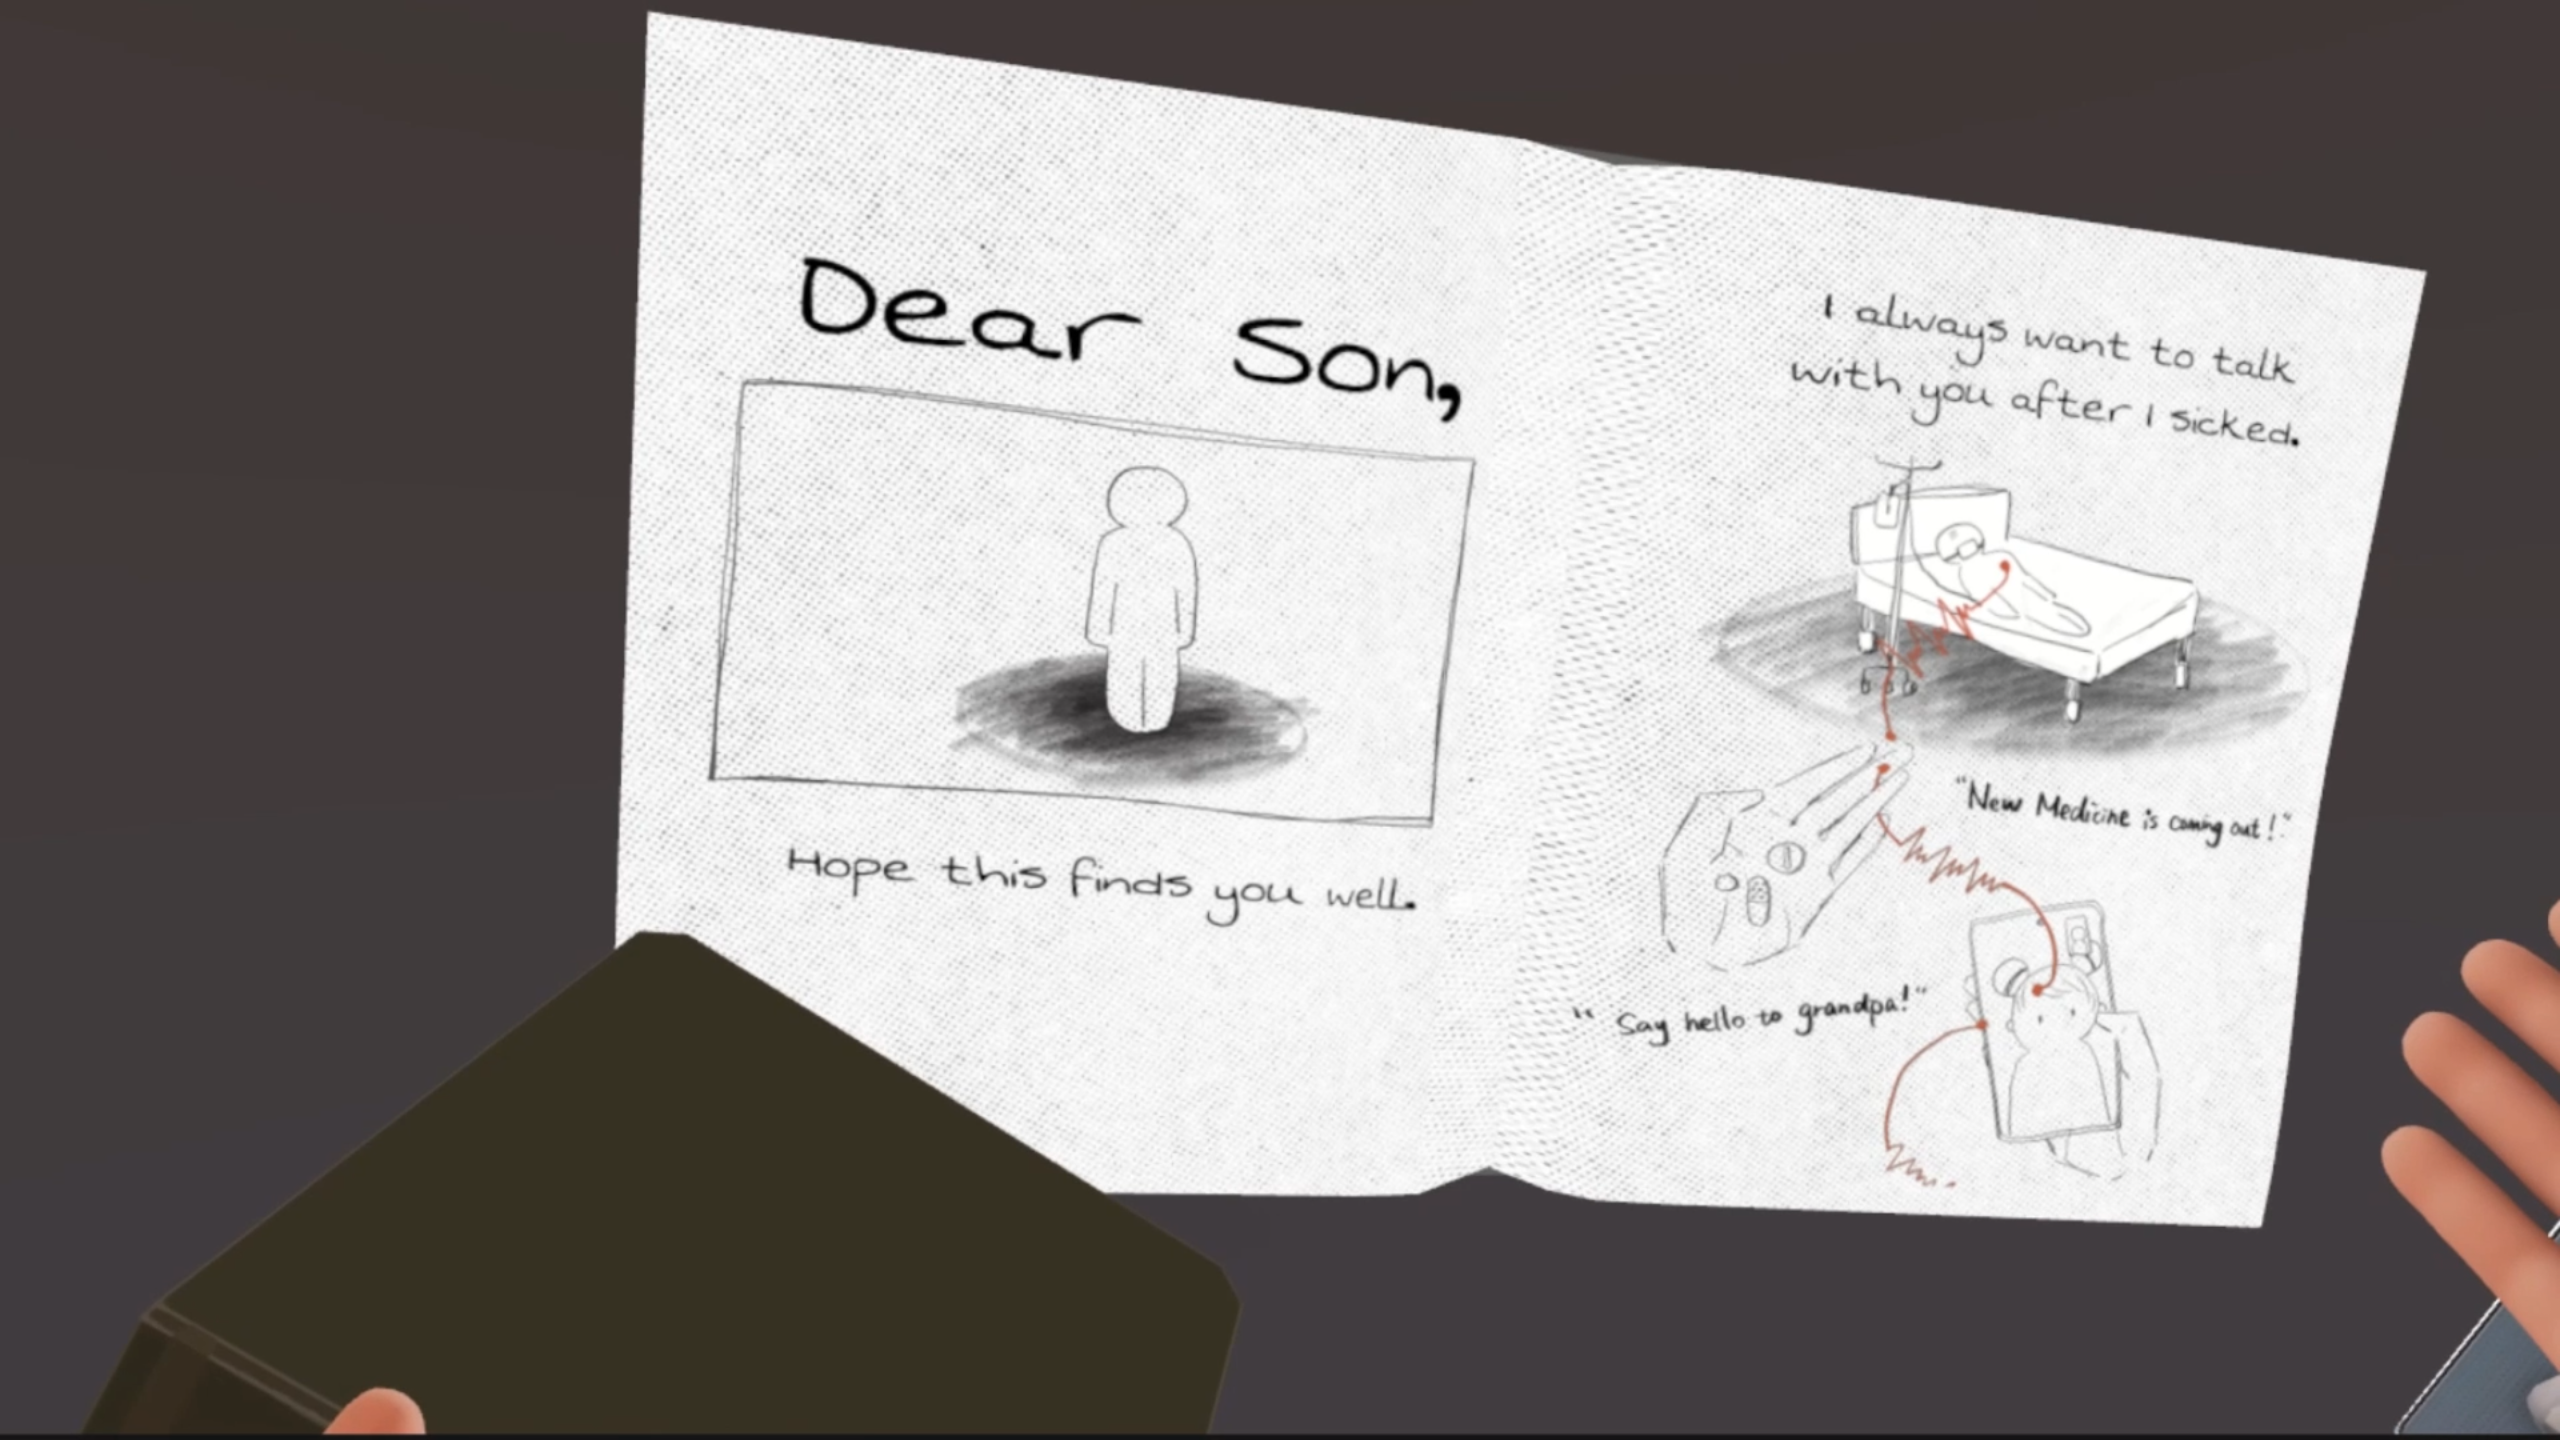 Dear Son,
Hope this finds you well.
I always want to talk
with you after I sicked.
"New Medicine is coming out!"
"Say hello to grandpa!"